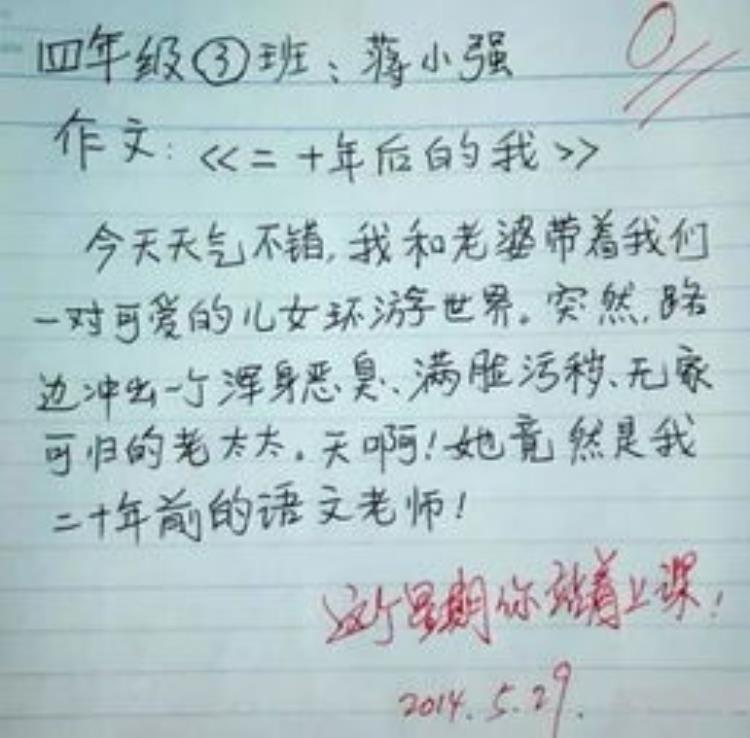 0
四年级③班：蒋小强
作文：《二十年后的我》
今天天气不错，我和老婆带着我们
一对可爱的儿女环游世界。突然，路
边冲出一个浑身恶臭、满脏污秽、无家
可归的老太太。天啊！她竟然是我
二十年前的语文老师！
这个星期你站着上课！
2014.5.29.